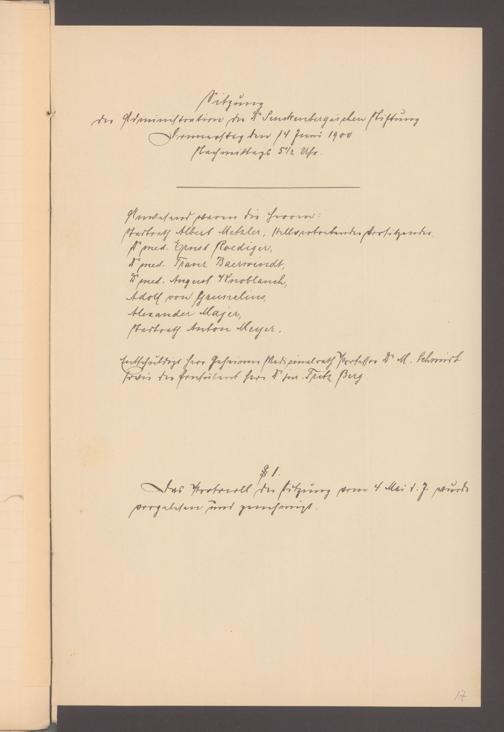 Sitzung
der Administration der Dr Senckenbergischen Stiftung
Donnerstag den 14 Juni 1900
Nachmittags 5 1/2 Uhr.
Anwesend waren die Herren:
Stadtrath Albert Metzler, stellvertretender Vorsitzender.
Dr med. Ernst Roediger,
Dr med. Franz Baerwindt,
Dr med. August Knoblauch,
Adolf von Grunelius,
Alexander Majer,
Stadtrath Anton Meyer.
Entschuldigt Herr Geheimer Medicinalrath Professor Dr M. Schmidt
sowie der Consulent Herr Dr jur. Fritz Berg.
§ 1.
Das Protocoll der Sitzung vom 4 Mai d. J. wurde
vorgelesen und genehmigt.
17